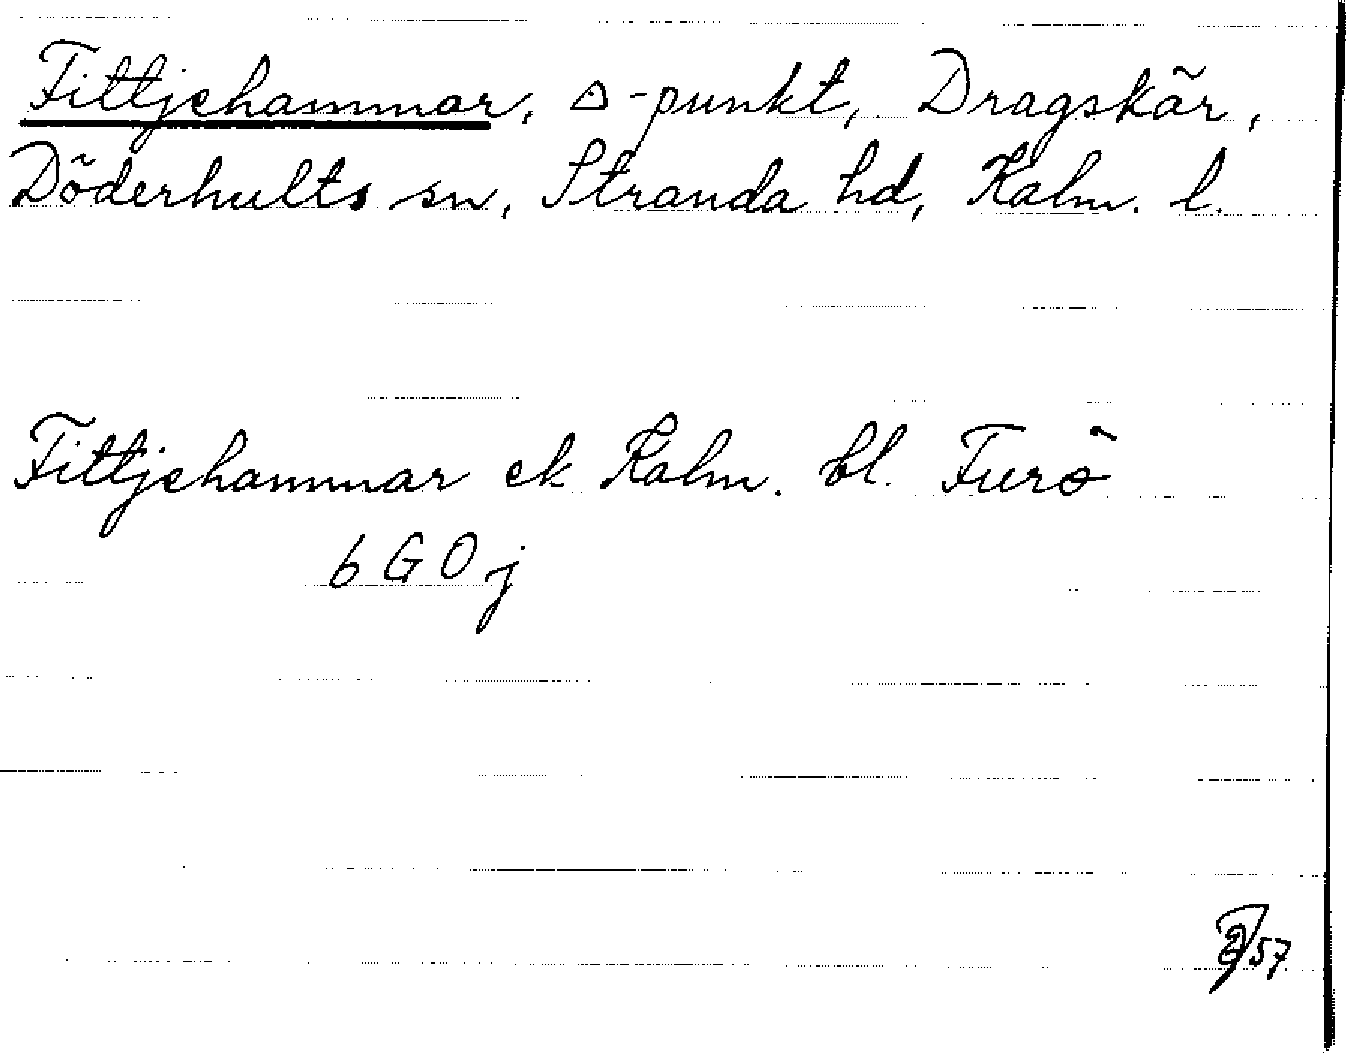 Fittjehammar, △-punkt, Dragskär,
Döderhults sn, Stranda hd, Kalm. l.
Fittjehammar ek Kalm. bl. Furö
6 G 0 j
57